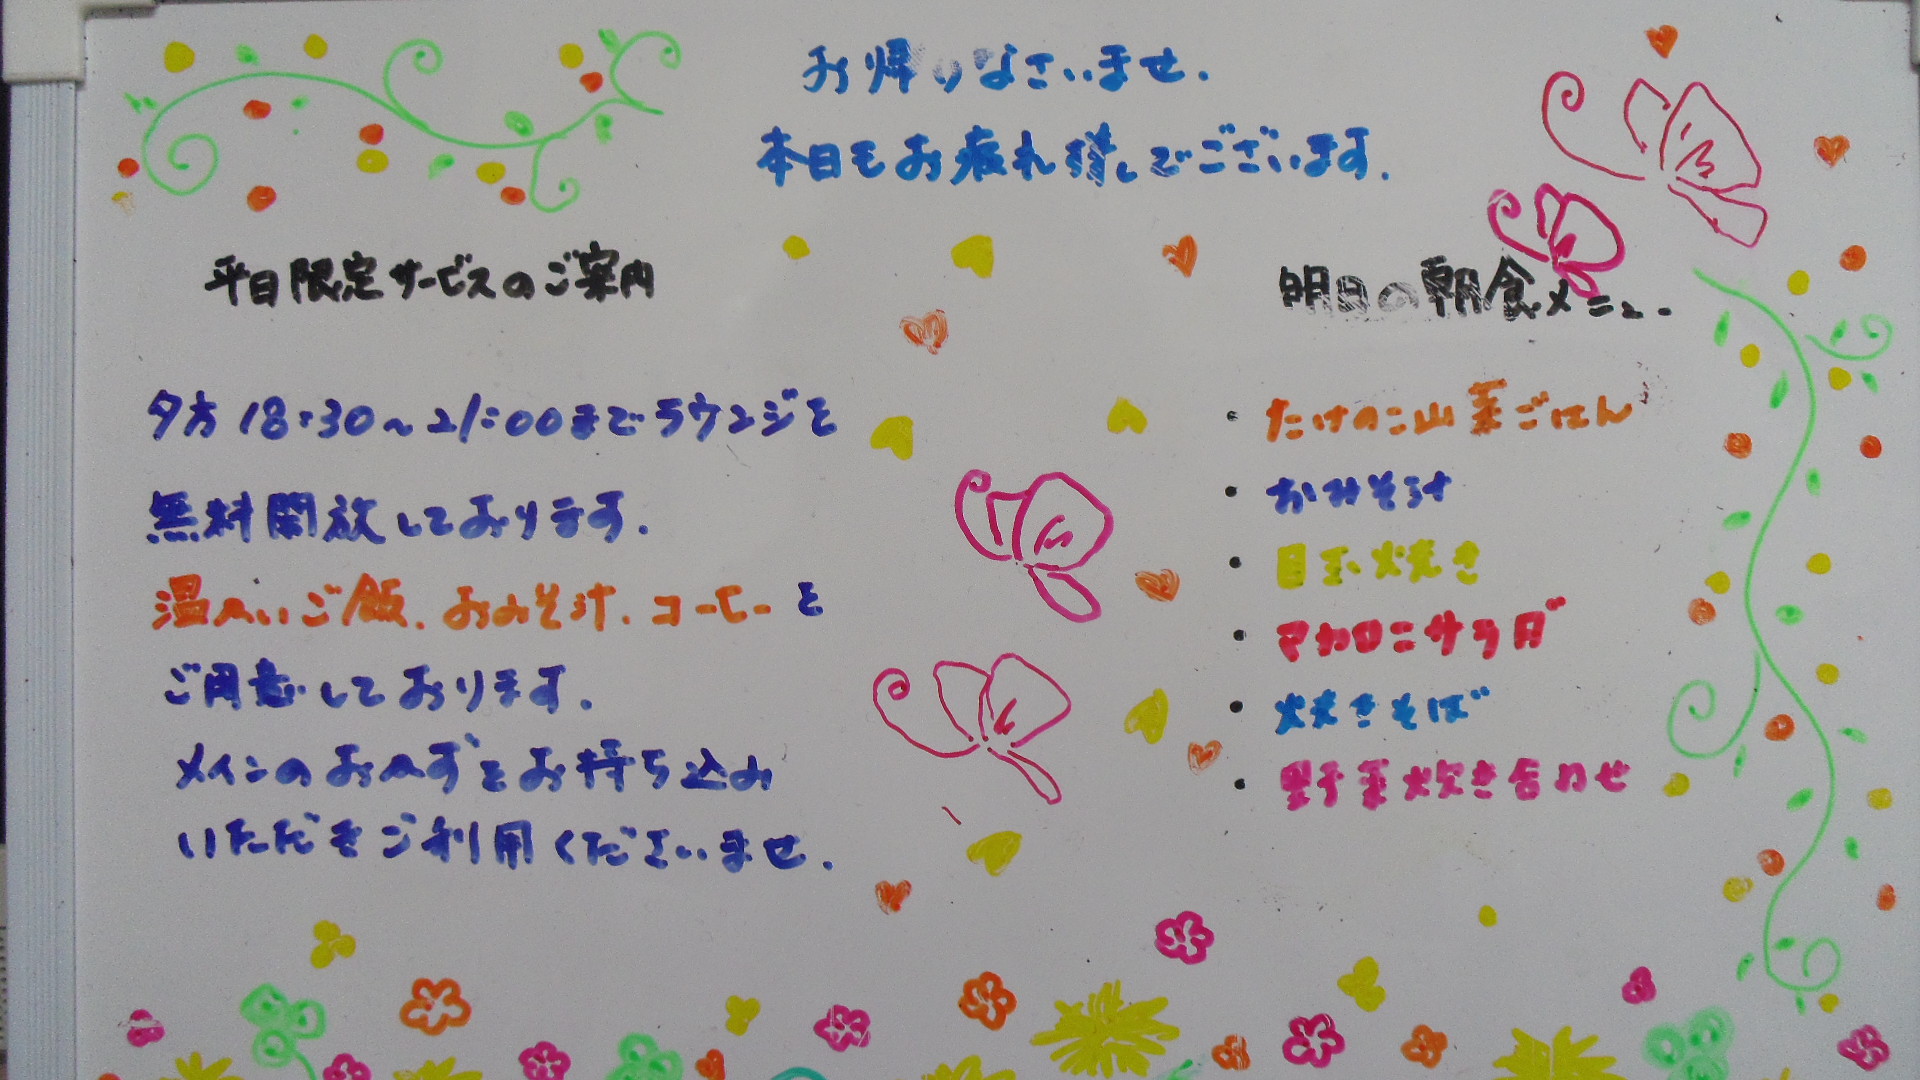 お帰りなさいませ.
本日もお疲れ様でございます.
平日限定サービスのご案内
夕方18:30~21:00までラウンジを
無料開放しております.
温かいご飯.おみそ汁.コーヒーを
ご用意しております.
メインのおかずをお持ち込み
いただきご利用くださいませ.
明日の朝食メニュー
・たけのこ山菜ごはん
・おみそ汁
・目玉焼き
・マカロニサラダ
・焼きそば
・野菜炊き合わせ